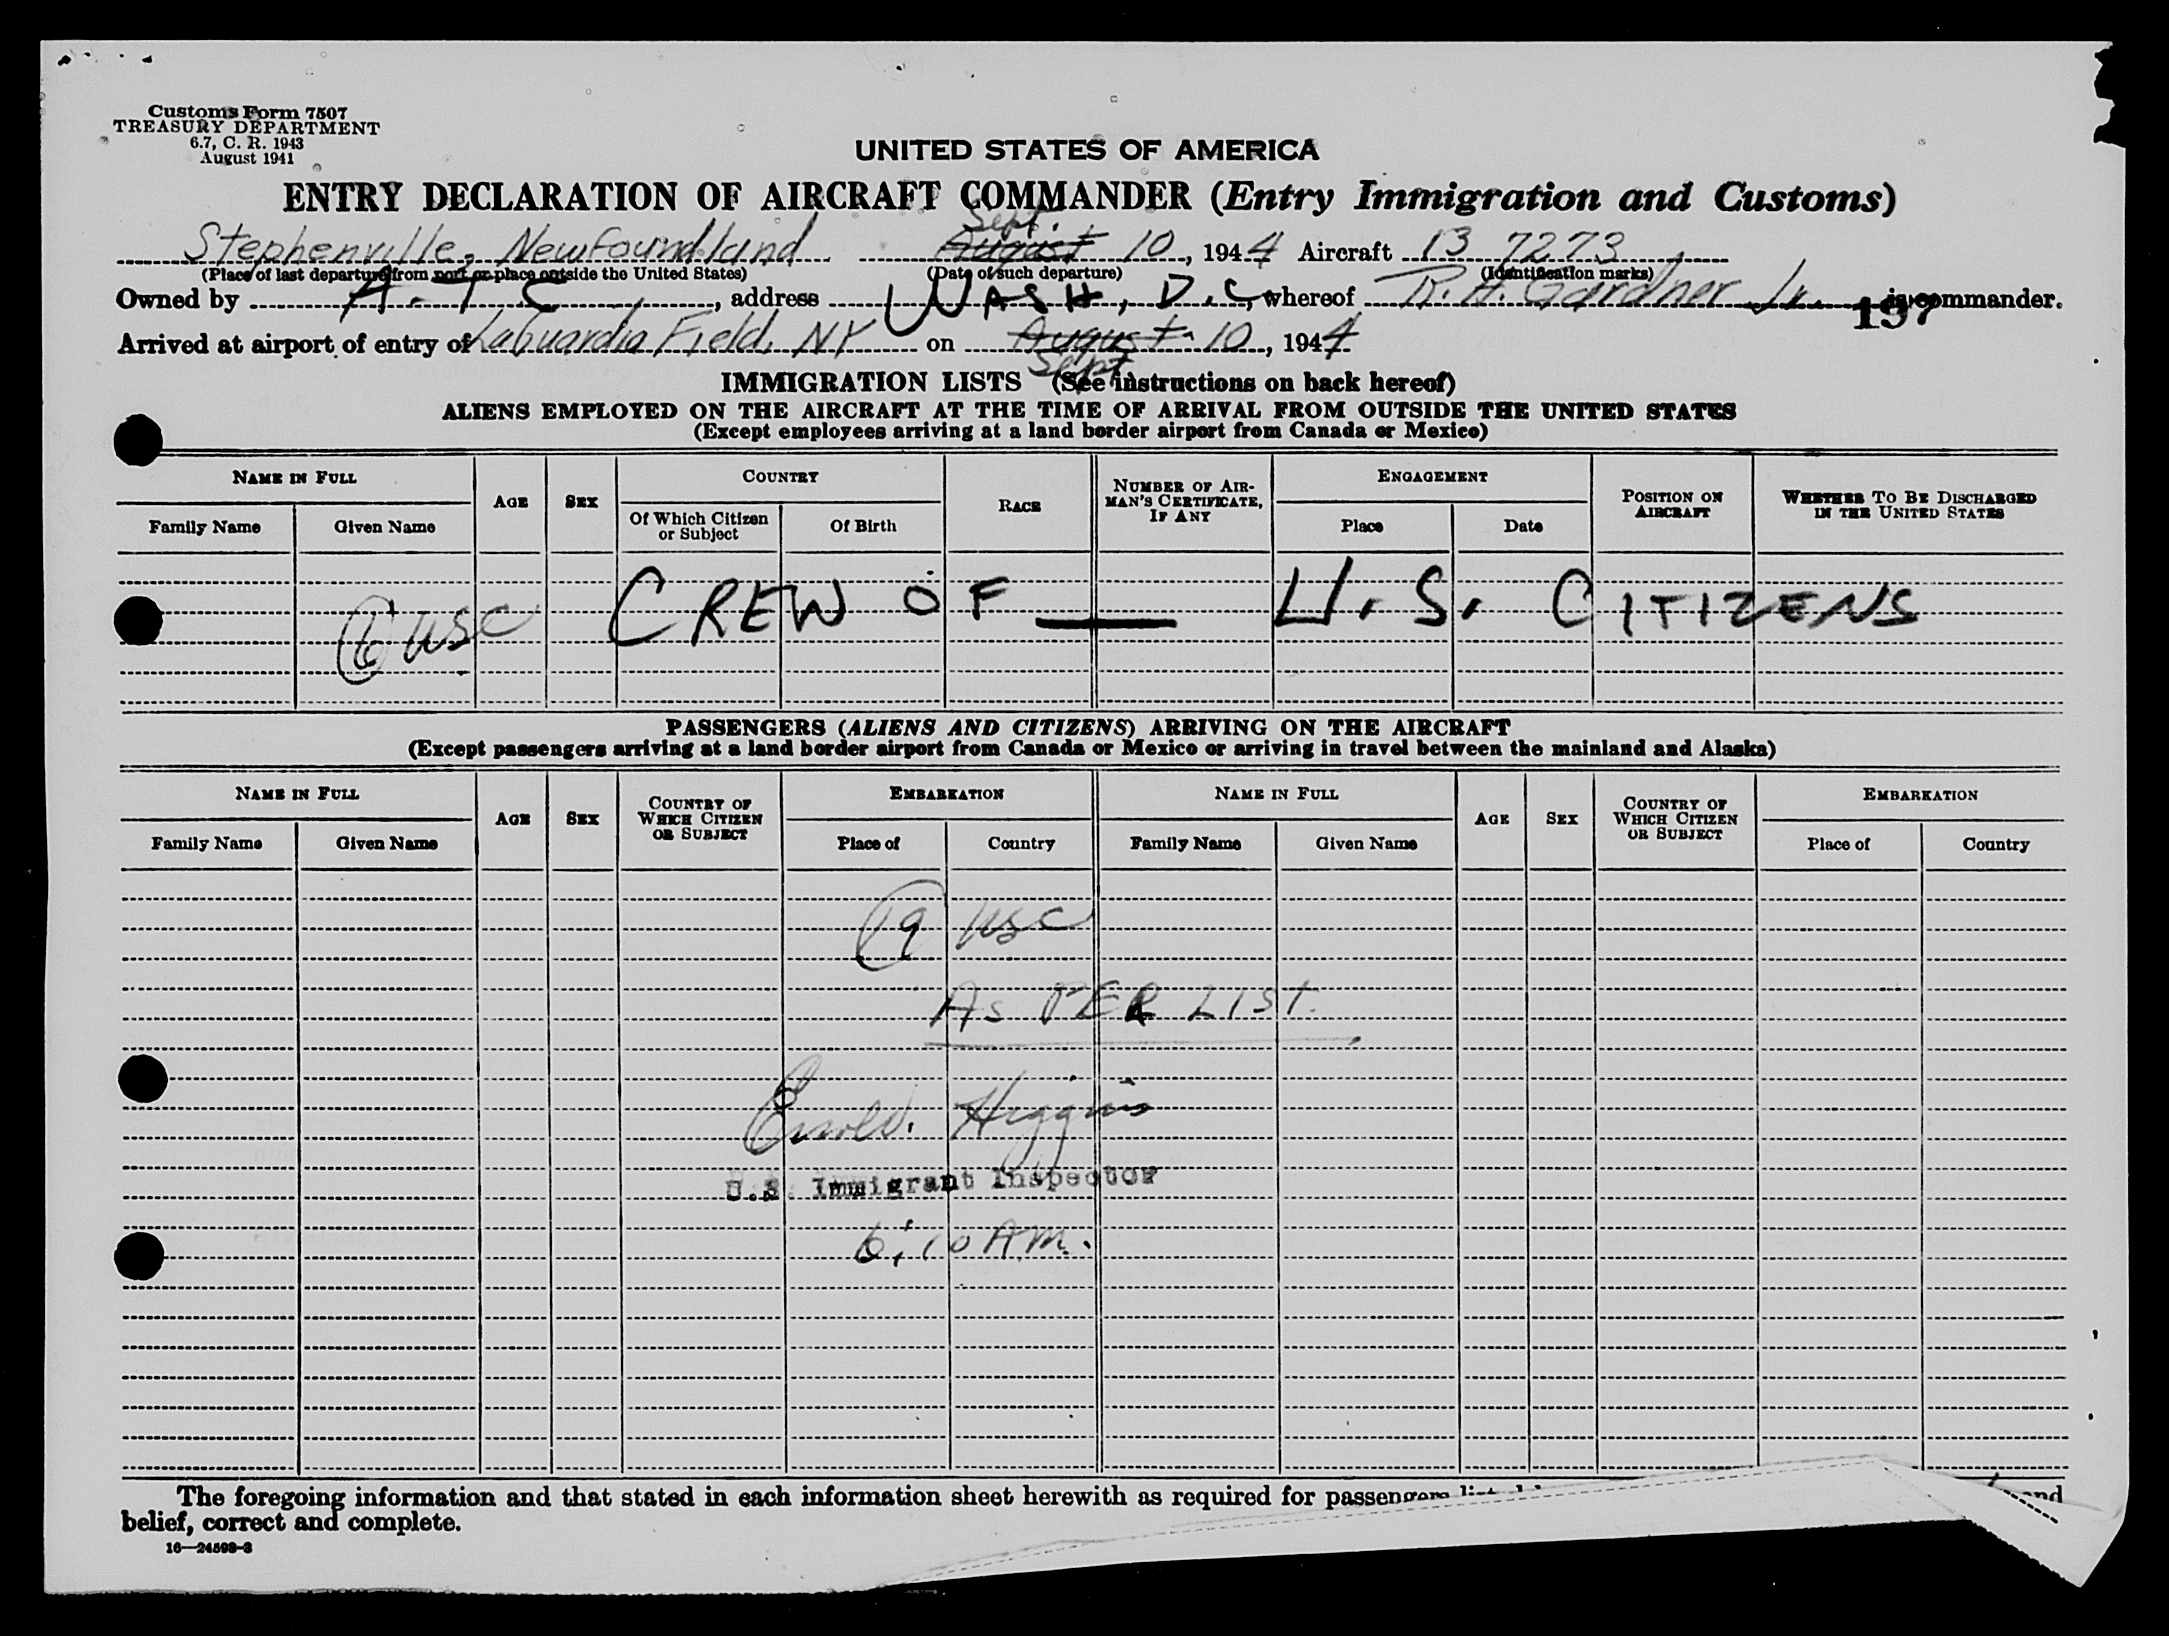 Customs Form 7507
TREASURY DEPARTMENT
6.7, C. R. 1943
August 1941
UNITED STATES OF AMERICA
ENTRY DECLARATION OF AIRCRAFT COMMANDER (Entry Immigration and Customs)
Sept.
Stephenville, Newfoundland August 10, 1944 Aircraft 13 7273
(Place of last departure from port or place outside the United States) (Date of such departure) (Identification marks)
Owned by A.T.C., address WASH, D.C. whereof R. H. Gardner Jr. is commander.
197
Arrived at airport of entry of LaGuardia Field, NY on August 10, 1944
Sept
IMMIGRATION LISTS (See instructions on back hereof)
ALIENS EMPLOYED ON THE AIRCRAFT AT THE TIME OF ARRIVAL FROM OUTSIDE THE UNITED STATES
(Except employees arriving at a land border airport from Canada or Mexico)
NAME IN FULL AGE SEX COUNTRY RACE NUMBER OF AIRMAN'S CERTIFICATE, IF ANY ENGAGEMENT POSITION ON AIRCRAFT WHETHER TO BE DISCHARGED IN THE UNITED STATES
Family Name Given Name Of Which Citizen or Subject Of Birth Place Date
6 USC CREW OF — U.S. CITIZENS
PASSENGERS (ALIENS AND CITIZENS) ARRIVING ON THE AIRCRAFT
(Except passengers arriving at a land border airport from Canada or Mexico or arriving in travel between the mainland and Alaska)
NAME IN FULL AGE SEX COUNTRY OF WHICH CITIZEN OR SUBJECT EMBARKATION NAME IN FULL AGE SEX COUNTRY OF WHICH CITIZEN OR SUBJECT EMBARKATION
Family Name Given Name Place of Country Family Name Given Name Place of Country
19 USC
AS PER LIST.
Higgins
U.S. Immigrant Inspector
6:10 AM.
The foregoing information and that stated in each information sheet herewith as required for passengers and
belief, correct and complete.
16—24598-3